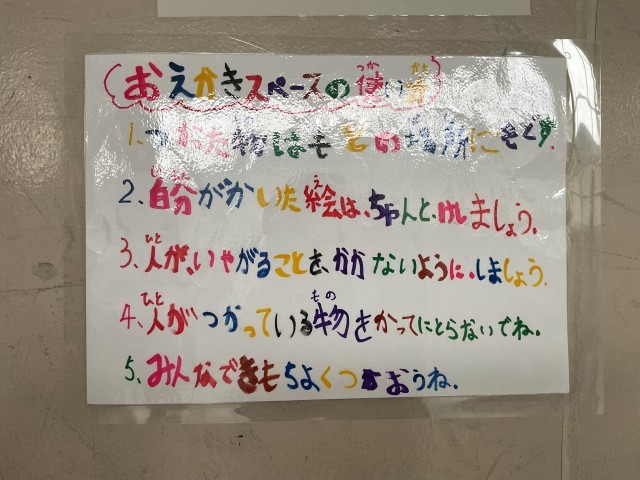 おえかきスペースの使い方
1、つかった物はもとの場所にもどす。
2、自分がかいた絵は、ちゃんと、けしましょう。
3、人が、いやがることを、かかないように、しましょう。
4、人がつかっている物をかってにとらないでね。
5、みんなできもちよくつかおうね。